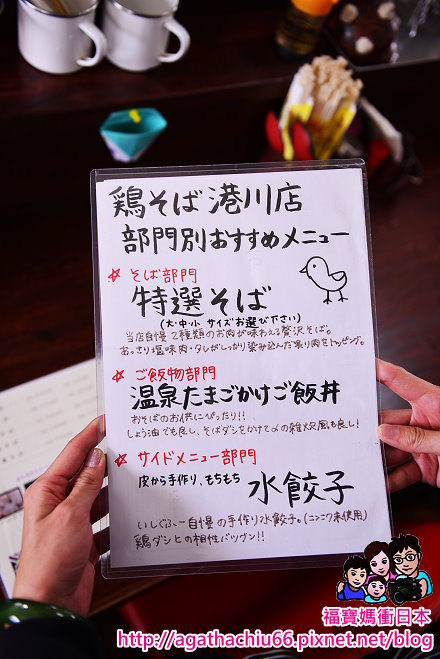 鶏そば 港川店
部門別おすすめメニュー
☆そば部門
特選そば
(大・中・小 サイズお選び下さい)
当店自慢2種類のお肉が味わえる贅沢そば。
あっさり塩味肉・タレがしっかり染み込んだ炙り肉をトッピング。
☆ご飯物部門
温泉たまごかけご飯丼
おそばのお供にぴったり!!
しょう油でも良し、そばダシをかけて〆の雑炊風も良し!
☆サイドメニュー部門
皮から手作り、もちもち 水餃子
いしぐふー自慢の手作り水餃子。(ニンニク未使用)
鶏ダシとの相性バツグン!!
福寶媽衝日本
http://agathachiu66.pixnet.net/blog